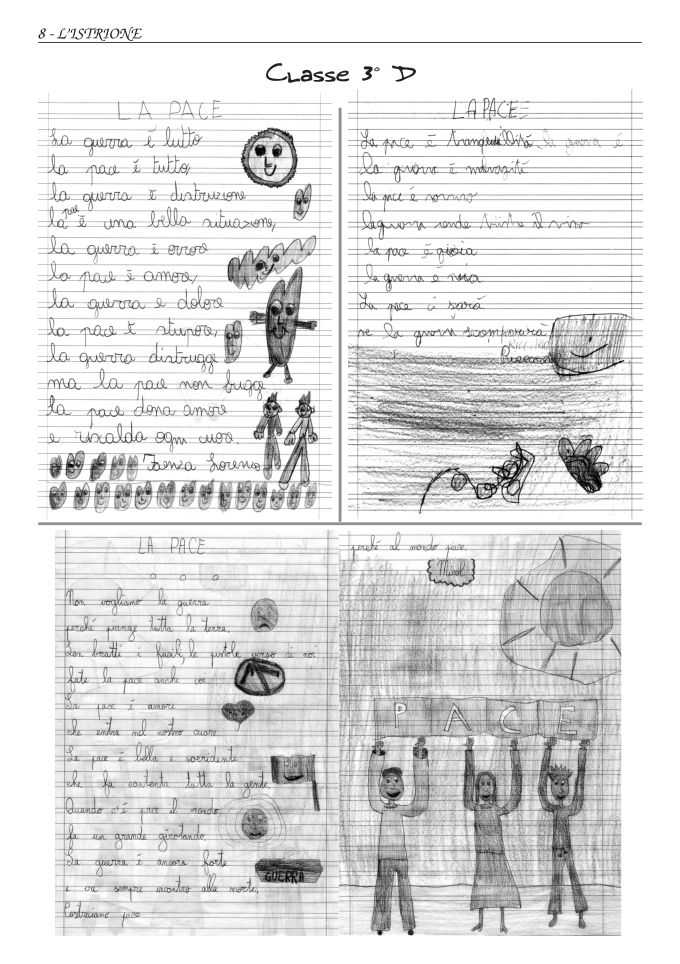 8 - L'ISTRIONE
Classe 3° D
LA PACE
La guerra è lutto
la pace è tutto,
la guerra è distruzione
la pace è una bella situazione,
la guerra è orrore
la pace è amore,
la guerra e dolore
la pace è stupore,
la guerra distrugge
ma la pace non fugge
la pace dona amore
e riscalda ogni cuore.
Faenza Lorenzo
LA PACE
La pace è tranquillità la guerra è
la guerra è malvagità
la pace è sorriso
la guerra rende triste il viso
la pace è gioia
la guerra è noia
La pace ci sarà
se la guerra scomparirà
LA PACE
Non vogliamo la guerra
perché piange tutta la terra.
Son brutti i fucili, le pistole verso di noi
fate la pace anche voi
La pace è amore
che entra nel nostro cuore
La pace è bella e sorridente
che fa contenta tutta la gente.
Quando c'è pace il mondo
fa un grande girotondo.
La guerra è ancora forte
e va sempre incontro alla morte,
GUERRA
Costruiamo pace
perché al mondo pace.
PACE